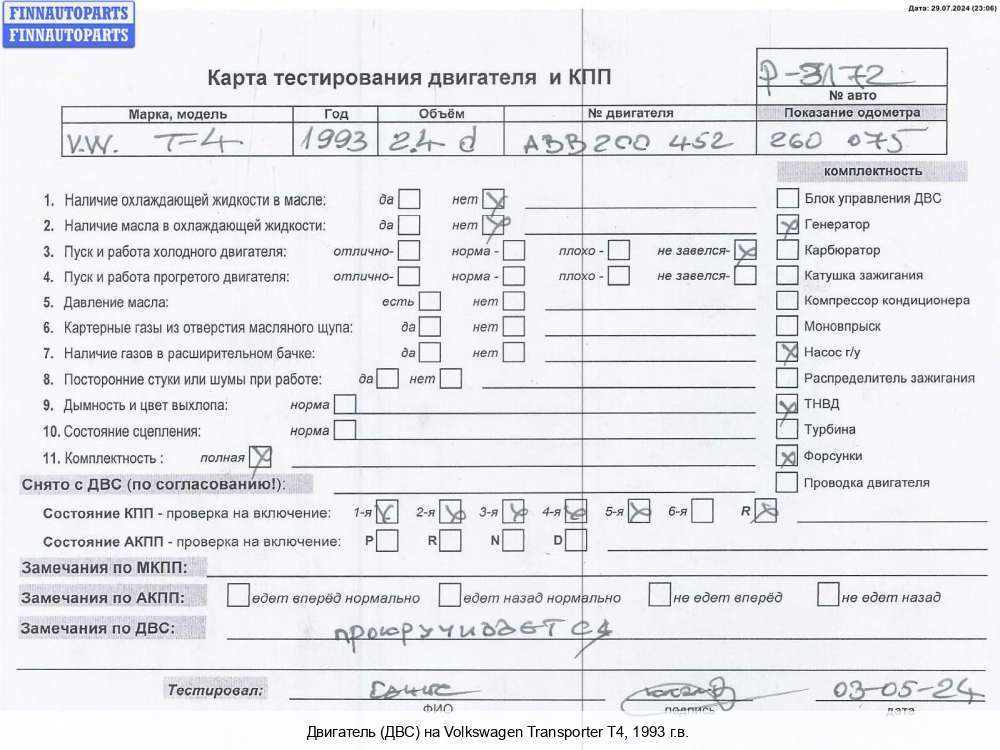 Дата: 29.07.2024 (23:06)
FINNAUTOPARTS
FINNAUTOPARTS
Карта тестирования двигателя и КПП
P-3172
№ авто
Марка, модель Год Объём № двигателя Показание одометра
V.W. T-4 1993 2.4 d ABB 200 452 260 075
комплектность
1. Наличие охлаждающей жидкости в масле: да нет
Блок управления ДВС
2. Наличие масла в охлаждающей жидкости: да нет
Генератор
3. Пуск и работа холодного двигателя: отлично- норма - плохо - не завелся-
Карбюратор
4. Пуск и работа прогретого двигателя: отлично- норма - плохо - не завелся-
Катушка зажигания
5. Давление масла: есть нет
Компрессор кондиционера
6. Картерные газы из отверстия масляного щупа: да нет
Моновпрыск
7. Наличие газов в расширительном бачке: да нет
Насос г/у
8. Посторонние стуки или шумы при работе: да нет
Распределитель зажигания
9. Дымность и цвет выхлопа: норма
ТНВД
10. Состояние сцепления: норма
Турбина
11. Комплектность : полная
Форсунки
Снято с ДВС (по согласованию!):
Проводка двигателя
Состояние КПП - проверка на включение: 1-я 2-я 3-я 4-я 5-я 6-я R
Состояние АКПП - проверка на включение: P R N D
Замечания по МКПП:
Замечания по АКПП: едет вперёд нормально едет назад нормально не едет вперёд не едет назад
Замечания по ДВС: прокручивается
Тестировал: 03-05-24
ФИО подпись дата
Двигатель (ДВС) на Volkswagen Transporter T4, 1993 г.в.